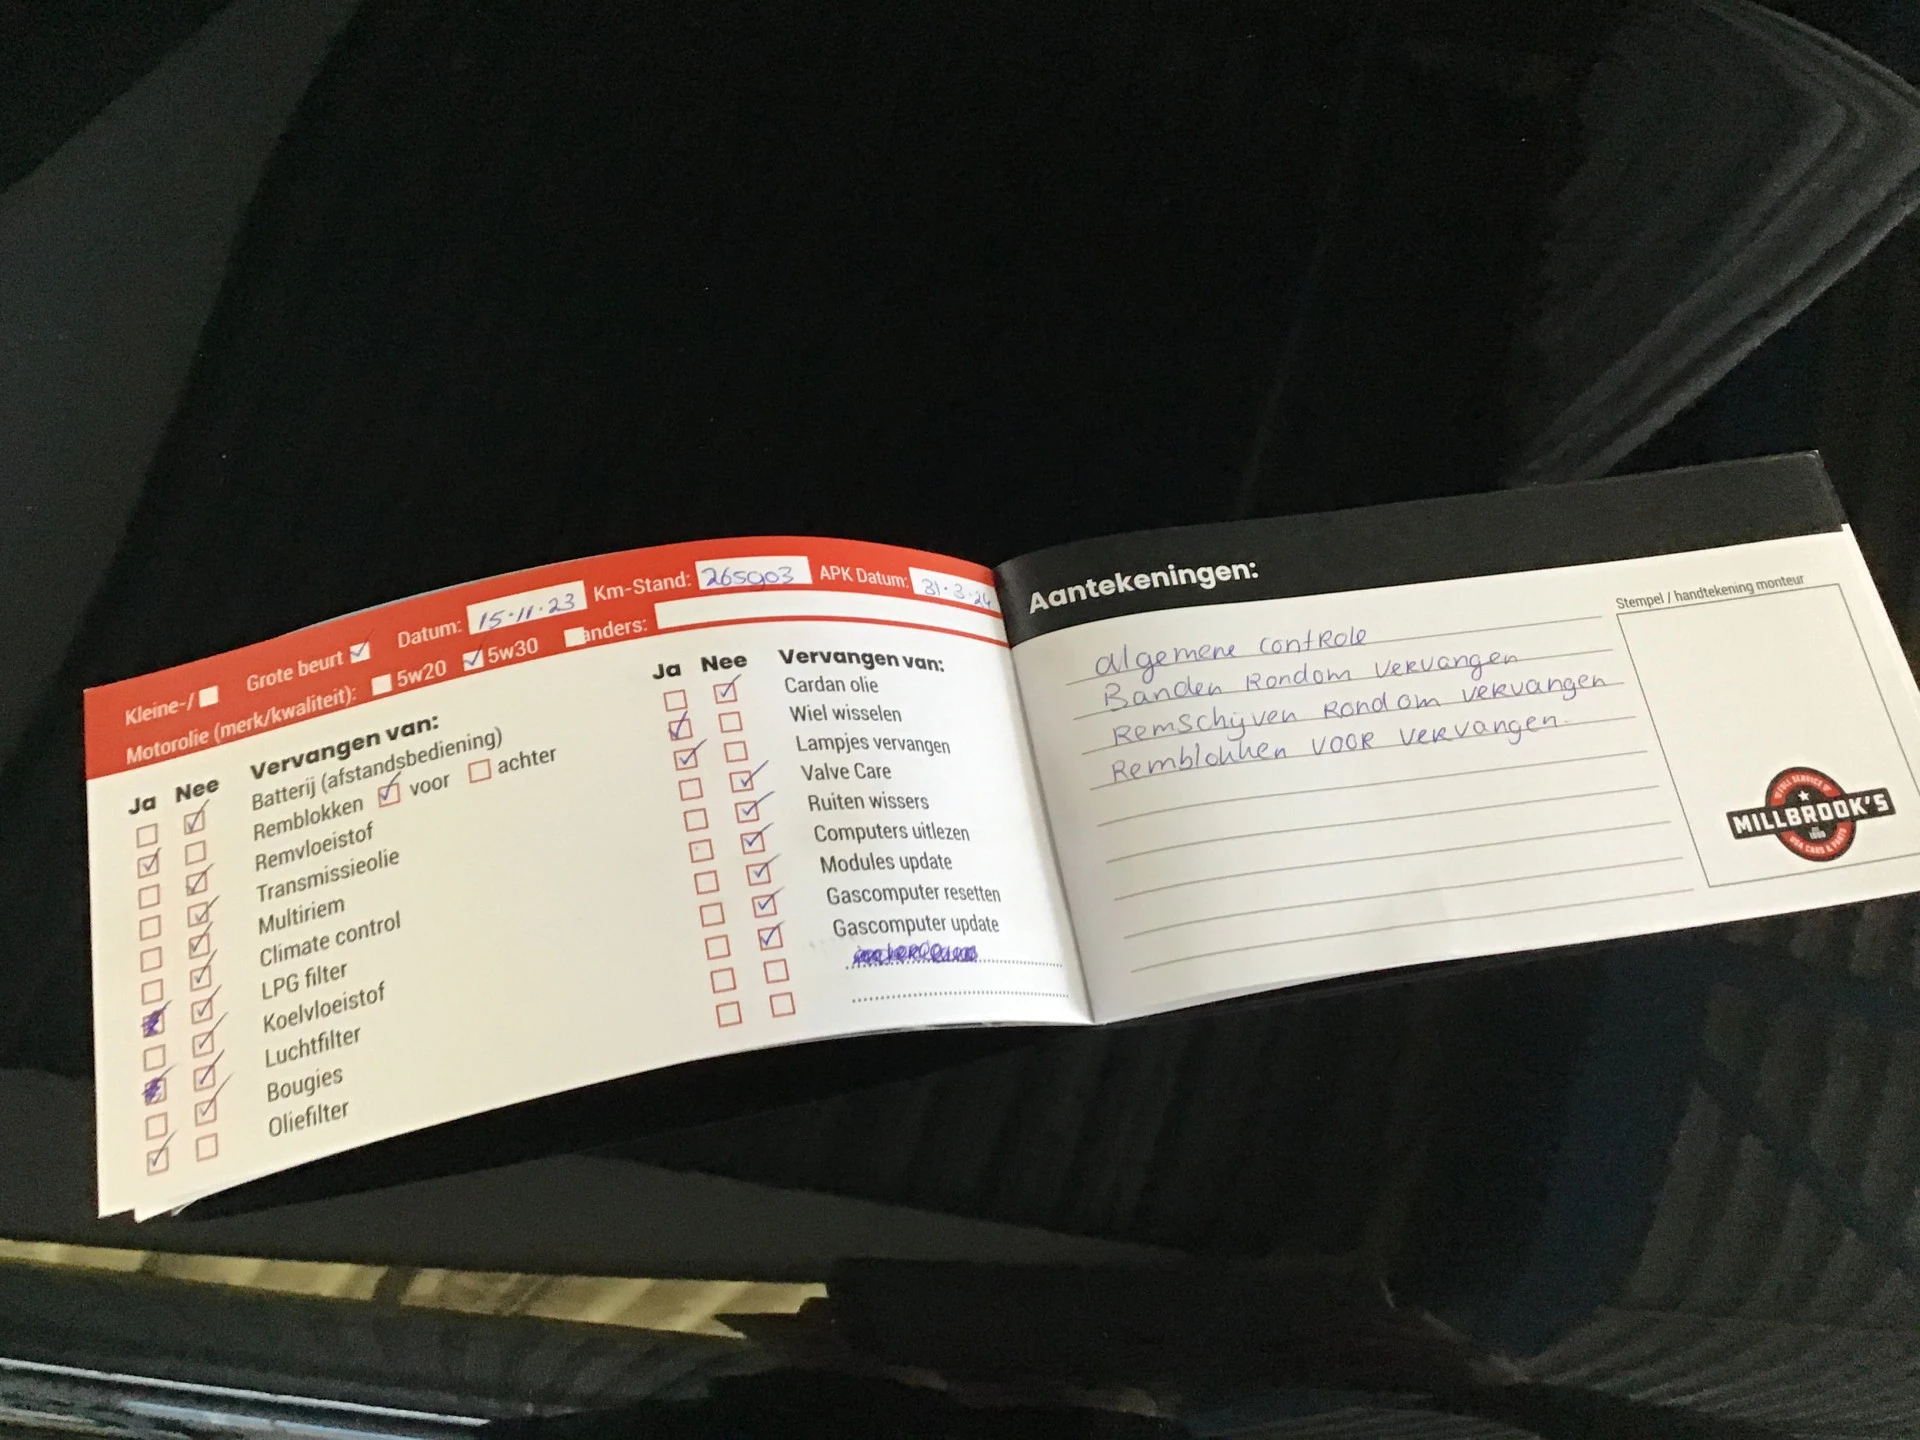 Kleine-/ Grote beurt Datum: 15.11.23 Km-Stand: 265903 APK Datum: 31.3.24
Motorolie (merk/kwaliteit): 5w20 5w30 anders:
Ja Nee Vervangen van:
Batterij (afstandsbediening)
Remblokken voor achter
Remvloeistof
Transmissieolie
Multiriem
Climate control
LPG filter
Koelvloeistof
Luchtfilter
Bougies
Oliefilter
Ja Nee Vervangen van:
Cardan olie
Wiel wisselen
Lampjes vervangen
Valve Care
Ruiten wissers
Computers uitlezen
Modules update
Gascomputer resetten
Gascomputer update
Aantekeningen:
algemene controle
Banden Rondom vervangen
Remschijven Rondom vervangen
Remblokken voor vervangen.
Stempel / handtekening monteur
FULL SERVICE
MILLBROOK'S
USA CARS & PARTS